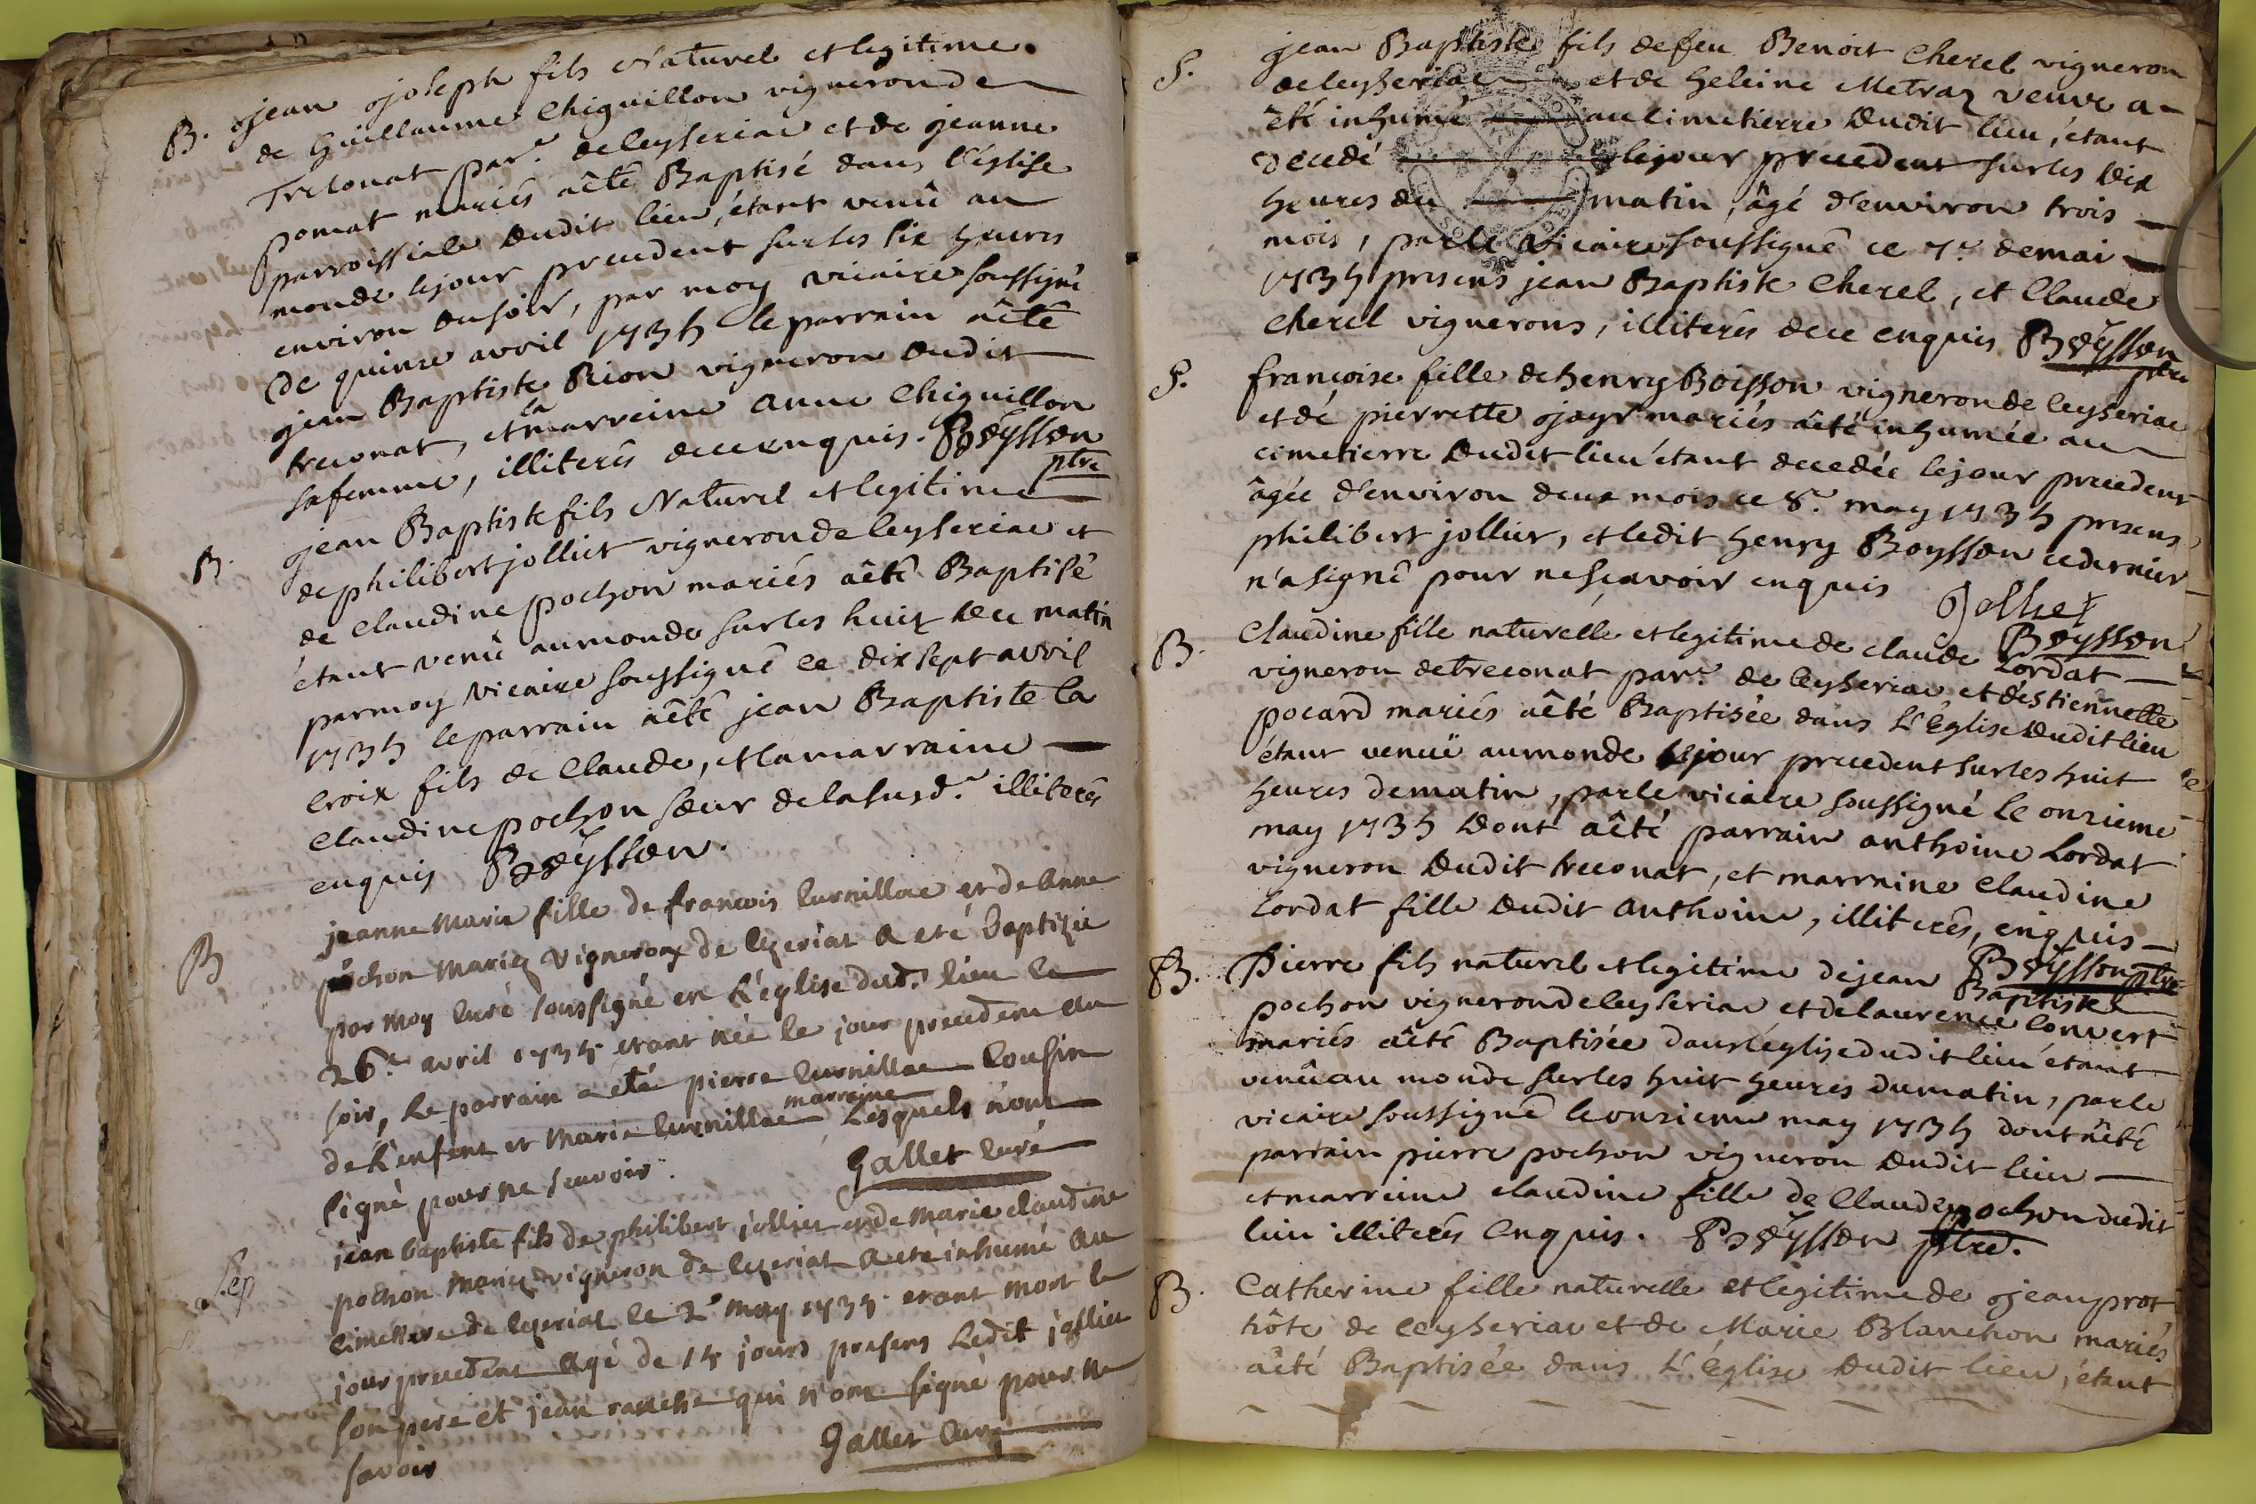 B. jean joseph fils Naturel et legitime
de Guillaume Chiguillon vigneron de
Treconat par.e de leyseriac et de jeanne
pomat mariés aêté Baptisé dans l'église
parroissiale dudit lieu, étant venû au
monde lejour precedent sur les six heures
environ du soir, par moy vicaire soussigné
ce quinze avril 1735 le parrain aêté
jean Baptiste Rion vigneron dudit
treconat, et la marreine anne Chiguillon
sa femme, illiterés de ce enquis. Boÿsson
ptre
B. jean Baptiste fils Naturel et legitime
de philibert jolliet vigneron de leyseriac et
de Claudine pochon mariés aêté Baptisé
étant venû au monde sur les huit de ce matin
par moy vicaire soussigné ce dix sept avril
1735 le parrain aêté jean Baptiste la
croix fils de Claude, et la marraine
Claudine pochon sœur de la susd.e illiterés
enquis Boÿsson.
B jeanne Marie fille de françois Curnillac et de Anne
pochon mariez vignerons de lezeriat a eté baptizée
par moy Curé soussigné en l'eglise dud.t lieu le
26.e avril 1735 etant née le jour precedent au
soir, le parrain a eté pierre Curnillac Cousin
de l'enfent et Marie Curnillac marraine Lesquels n'ont
signé pour ne scavoir.
Gallet Curé
Sep jean baptiste fils de philibert jolliet et de Marie claudine
pochon mariez vigneron de lezeriat a eté inhumé au
Cimettiere de lezeriat le 2.e may 1735 etant mort le
jour precedent agé de 15 jours presens Ledit jollier
son pere et jean ranche qui n'ont signé pour ne
savoir
Gallet Curé
S. jean Baptiste fils de feu Benoit Cherel vigneron
de leyseriac et de heleine Metraz veuve a
êté inhumé au cimetierre dudit lieu, étant
decedé le jour precedent sur les dix
heures du matin, âgé d'environ trois
mois, par le vicaire soussigné ce 7.e de mai
1735 presens jean Baptiste Cherel, et Claude
Cherel vignerons, illiterés de ce enquis Boÿsson
ptre
S. françoise fille de henry Boisson vigneron de leyseriac
et de pierrette jayr mariés aêté inhumée au
cimetierre dudit lieu étant decedée lejour precedent
âgée d'environ deux mois ce 8.e may 1735 presens
philibert jollier, et ledit henry Boysson ce dernier
n'a signé pour ne sçavoir enquis Jolliet
Boysson
B. Claudine fille naturelle et legitime de claude Lordat
vigneron de treconat par.e de leyseriac et d'estiennette
pocard mariés aêté Baptisée dans l'Eglise dudit lieu
étant venuë au monde lejour precedent sur les huit
heures de matin, par le vicaire soussigné le onzieme
may 1735 dont aêté parrain anthoine Lordat
vigneron dudit treconat, et marraine Claudine
Lordat fille dudit anthoine, illiterés, enquis
Boÿsson ptre
B. Pierre fils naturel et legitime de jean Baptiste
pochon vigneron de leyseriac et de laurence Convert
mariés aêté Baptisée dans l'église dudit lieu étant
venû au monde sur les huit heures du matin, par le
vicaire soussigné le onzieme may 1735 dont aêté
parrain pierre pochon vigneron dudit lieu
et marreine claudine fille de Claude pochon dudit
lieu illiterés enquis. Boÿsson ptre.
B. Catherine fille naturelle et legitime de jean prot
hôte de leyseriac et de Marie Blanchon mariés
aêté Baptisée dans l'Église dudit lieu, étant